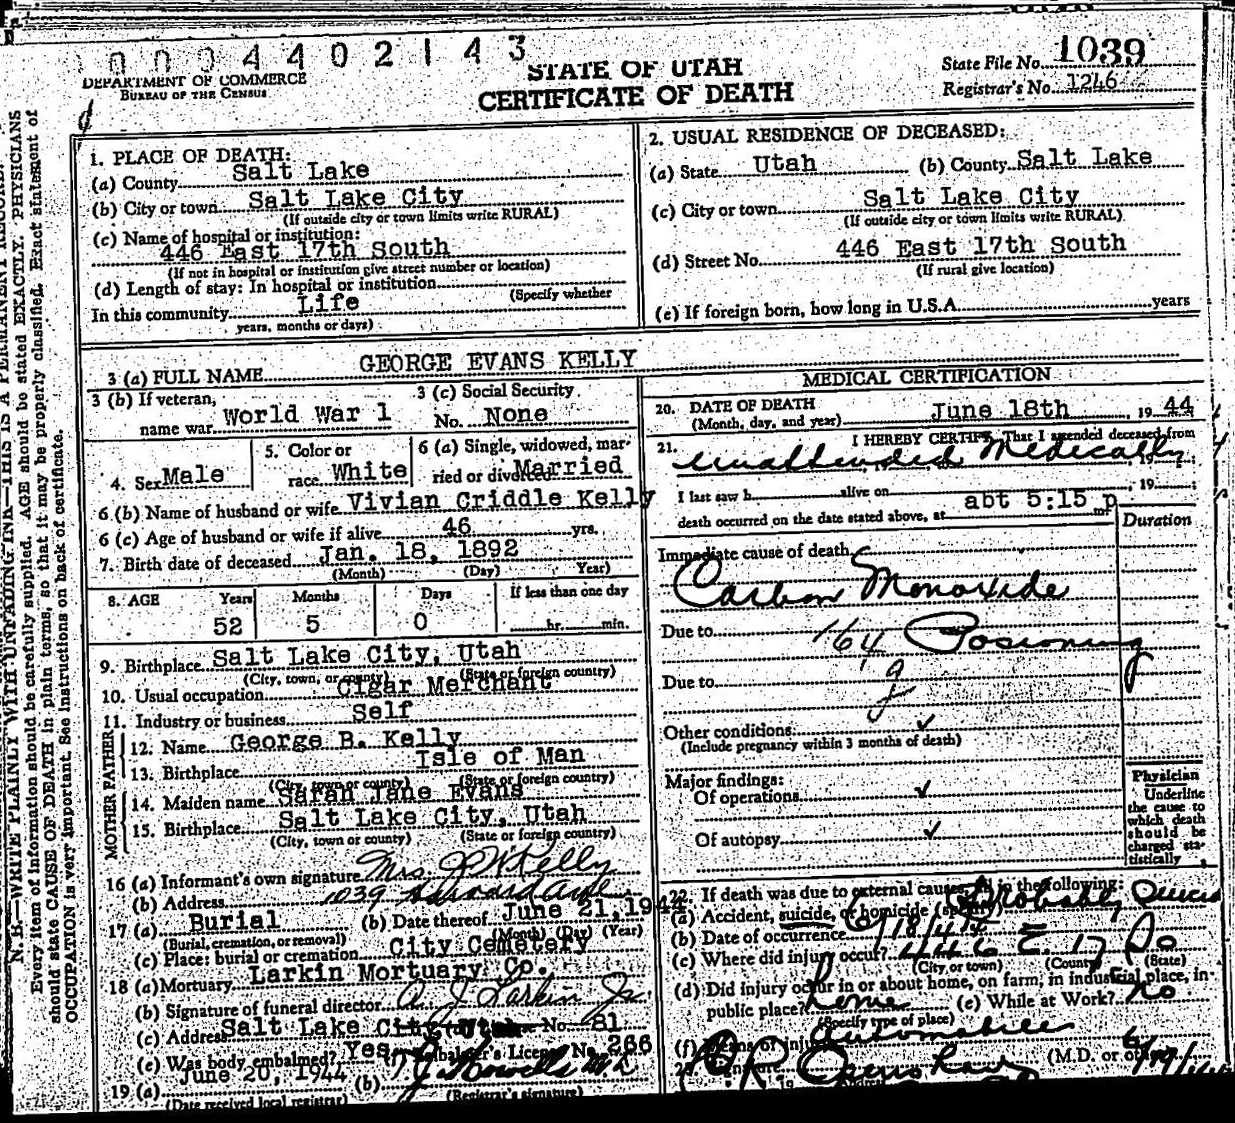 0004402143
DEPARTMENT OF COMMERCE
BUREAU OF THE CENSUS
STATE OF UTAH
CERTIFICATE OF DEATH
State File No. 1039
Registrar's No. 1246
N. B.—WRITE PLAINLY WITH UNFADING INK—THIS IS A PERMANENT RECORD.
Every item of information should be carefully supplied. AGE should be stated EXACTLY. PHYSICIANS
should state CAUSE OF DEATH in plain terms, so that it may be properly classified. Exact statement of
OCCUPATION is very important. See instructions on back of certificate.
1. PLACE OF DEATH:
(a) County Salt Lake
(b) City or town Salt Lake City
(If outside city or town limits write RURAL)
(c) Name of hospital or institution:
446 East 17th South
(If not in hospital or institution give street number or location)
(d) Length of stay: In hospital or institution
(Specify whether
In this community Life
years, months or days)
2. USUAL RESIDENCE OF DECEASED:
(a) State Utah (b) County Salt Lake
(c) City or town Salt Lake City
(If outside city or town limits write RURAL)
(d) Street No. 446 East 17th South
(If rural give location)
(e) If foreign born, how long in U.S.A. years
3 (a) FULL NAME GEORGE EVANS KELLY
3 (b) If veteran,
name war World War 1
3 (c) Social Security
No. None
4. Sex Male
5. Color or
race White
6 (a) Single, widowed, mar-
ried or divorced Married
6 (b) Name of husband or wife Vivian Criddle Kelly
6 (c) Age of husband or wife if alive 46 yrs.
7. Birth date of deceased Jan. 18, 1892
(Month) (Day) Year)
8. AGE Years Months Days If less than one day
52 5 0 hr. min.
9. Birthplace Salt Lake City, Utah
(City, town, or county) (State or foreign country)
10. Usual occupation Cigar Merchant
11. Industry or business Self
FATHER
12. Name George B. Kelly
13. Birthplace Isle of Man
(City, town or county) (State or foreign country)
MOTHER
14. Maiden name Sarah Jane Evans
15. Birthplace Salt Lake City, Utah
(City, town or county) (State or foreign country)
16 (a) Informant's own signature Mrs. J W Kelly
(b) Address 1039 Harvard Ave
17 (a) Burial (b) Date thereof June 21, 1944
(Burial, cremation, or removal) (Month) (Day) (Year)
(c) Place: burial or cremation City Cemetery
18 (a) Mortuary Larkin Mortuary Co.
(b) Signature of funeral director A J Larkin Jr
(c) Address Salt Lake City, Utah No. 81
(e) Was body embalmed? Yes Embalmer's License No. 266
19 (a) June 20, 1944 (b)
(Date received local registrar) (Registrar's signature)
MEDICAL CERTIFICATION
20. DATE OF DEATH June 18th, 1944
(Month, day, and year)
21. I HEREBY CERTIFY, That I attended deceased from
Unattended Medically, 19
I last saw h alive on , 19 ;
death occurred on the date stated above, at abt 5:15 p m.
Duration
Immediate cause of death
Carbon Monoxide
Due to 164 Posioning
Due to g
Other conditions ✓
(Include pregnancy within 3 months of death)
Major findings:
Of operations ✓
Of autopsy ✓
Physician
Underline
the cause to
which death
should be
charged sta-
tistically
22. If death was due to external causes, fill in the following:
(a) Accident, suicide, or homicide (specify) Probably Suicide
(b) Date of occurrence 6/18/44
(c) Where did injury occur? 446 E. 17 So
(City or town) (County) (State)
(d) Did injury occur in or about home, on farm, in industrial place, in
public place? home (e) While at Work? no
(Specify type of place)
(f) Means of injury Automobile
(M.D. or other)